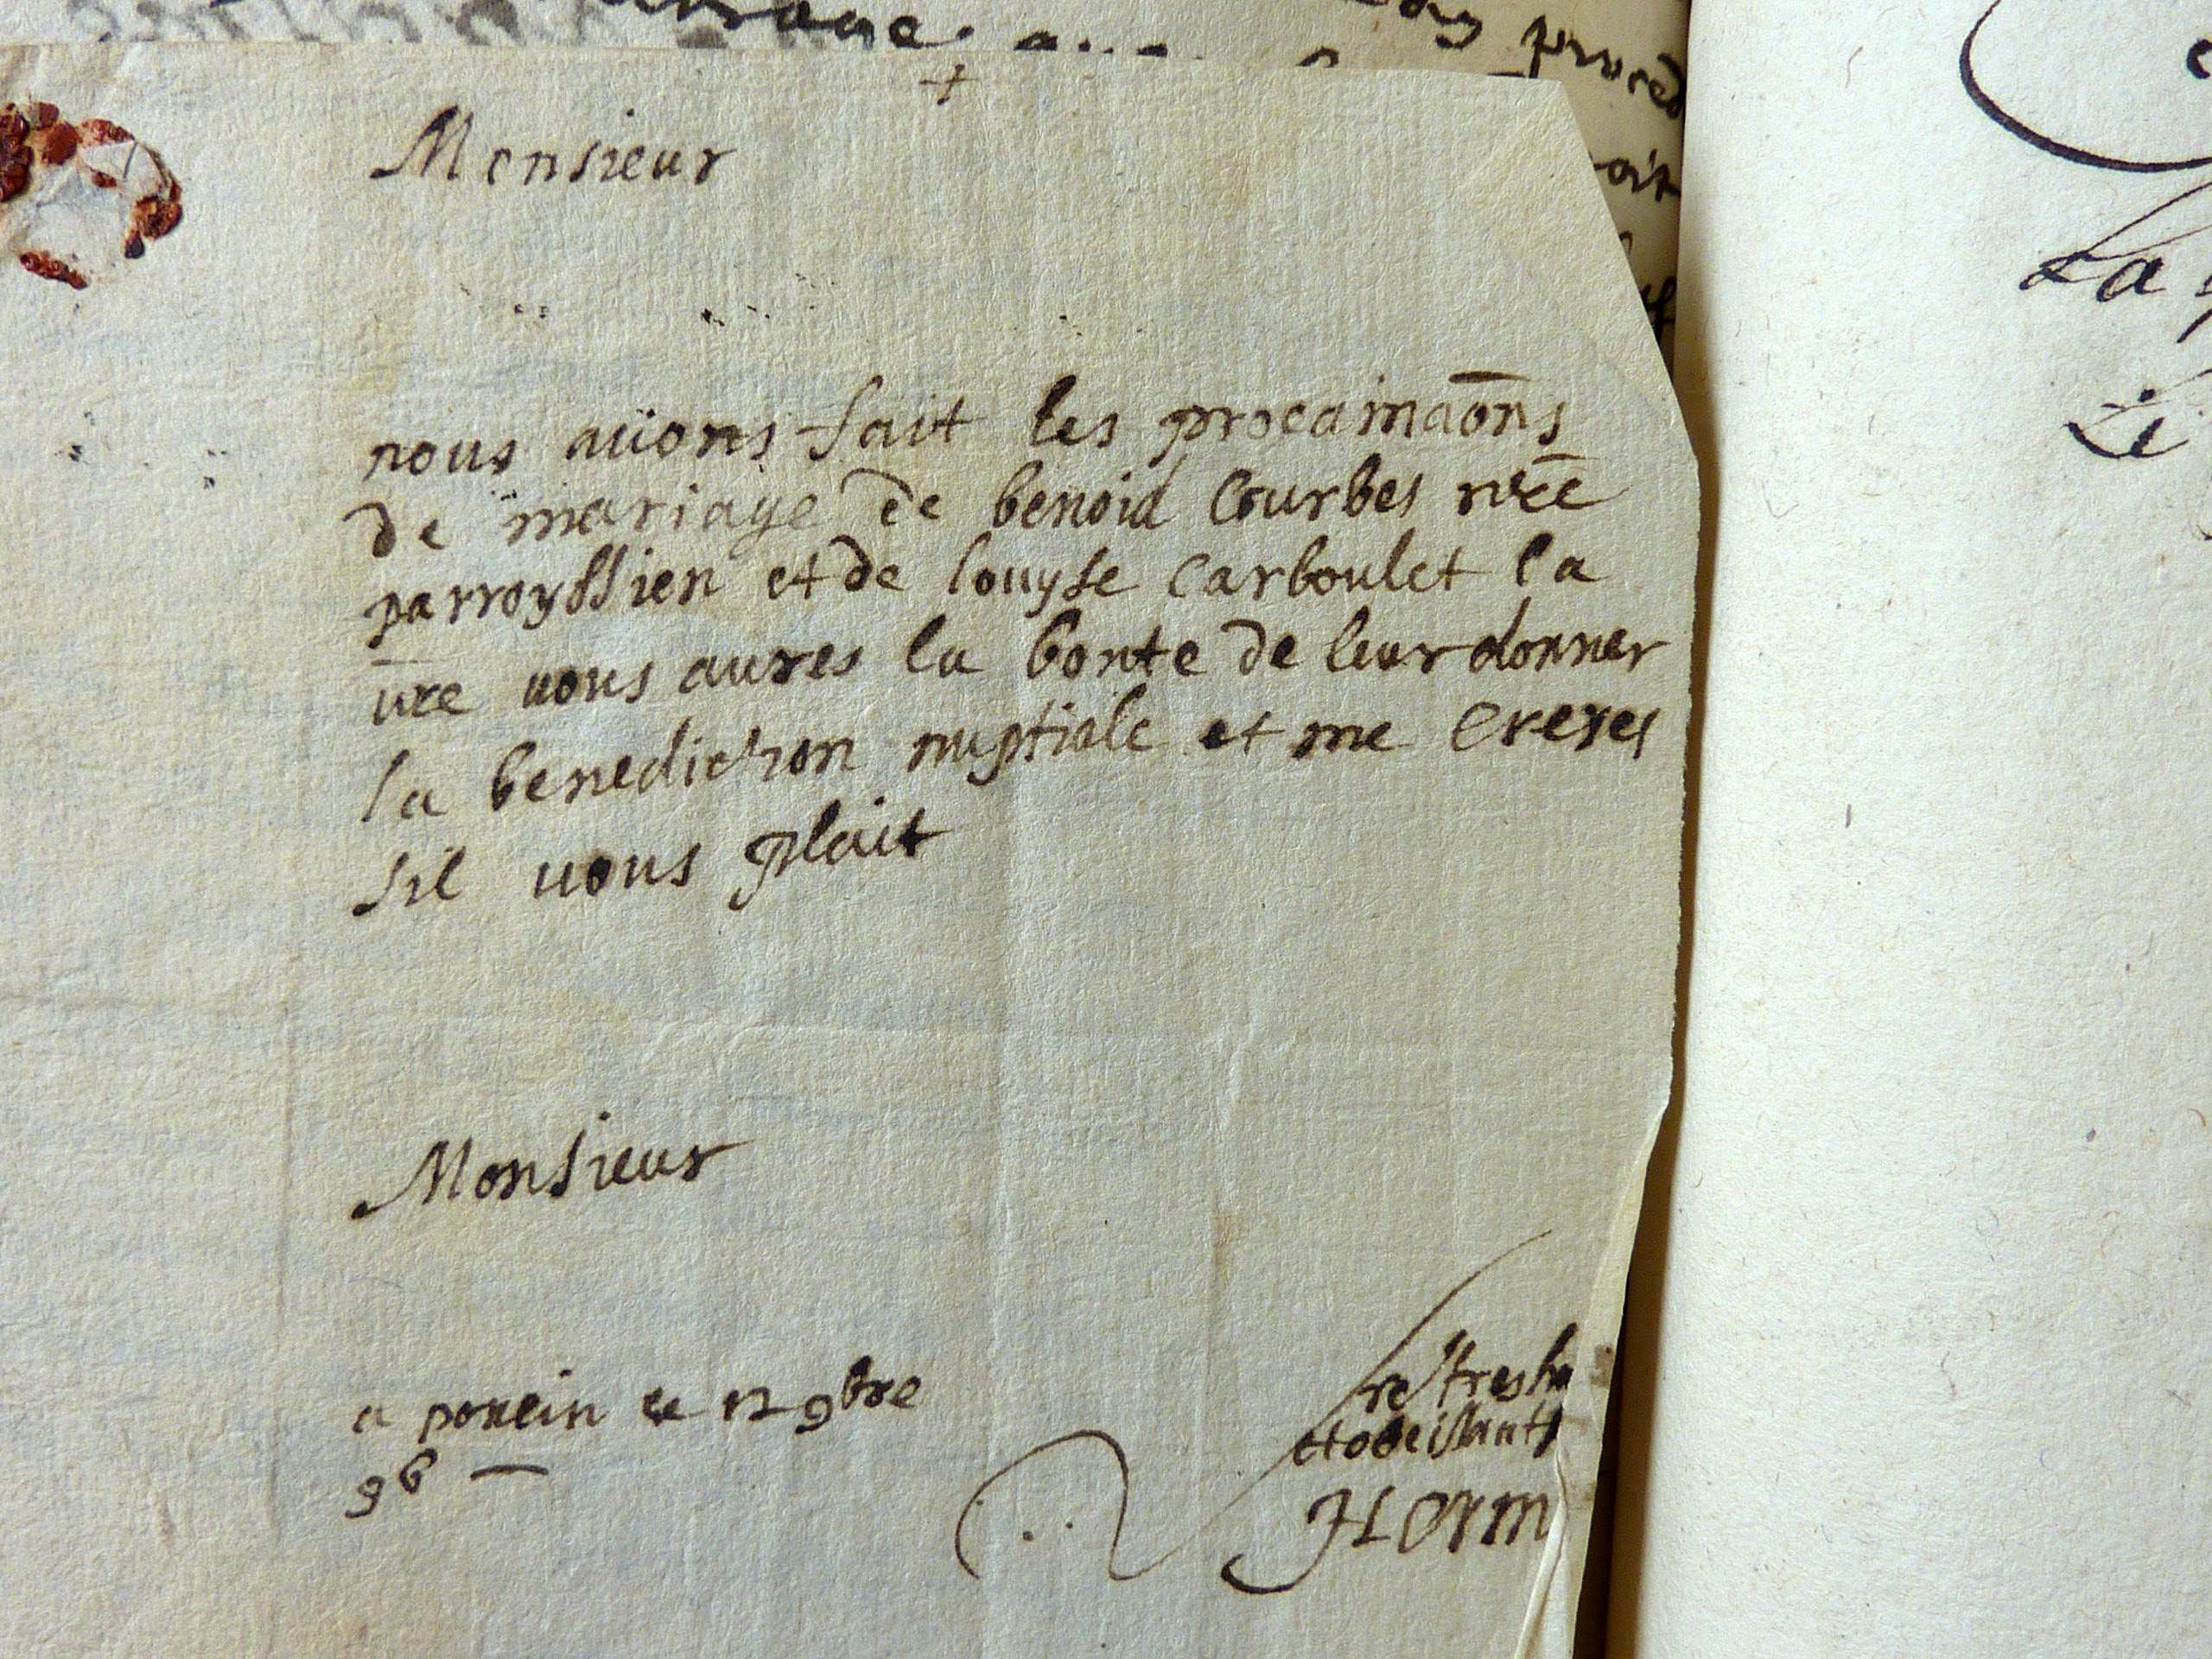 +
Monsieur
nous auons fait les procamaōns
de mariage de benoid Courbes n̄re
parroyssien et de louyse Carboulet la
v̄re uous aures la bonte de leur donner
la benediction nuptiale et me creres
sil uous plait
Monsieur
a poncin ce 12 9bre
96
re tres hu
et obeissant s